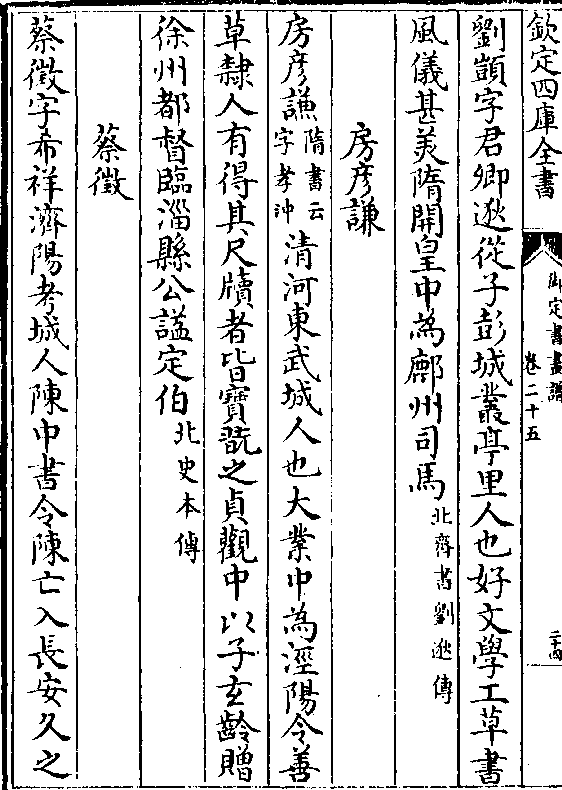 欽定四庫全書
御定書畫譜
卷二十五
二十四
劉顗字君卿逖從子彭城叢亭里人也好文學工草書
風儀甚美隋開皇中為鄜州司馬北齊書劉逖傳
房彦謙
房彦謙隋書云字孝沖清河東武城人也大業中為涇陽令善
草隸人有得其尺牘者皆寶翫之貞觀中以子玄齡贈
徐州都督臨淄縣公謚定伯北史本傳
蔡徵
蔡徵字希祥濟陽考城人陳中書令陳亡入長安久之